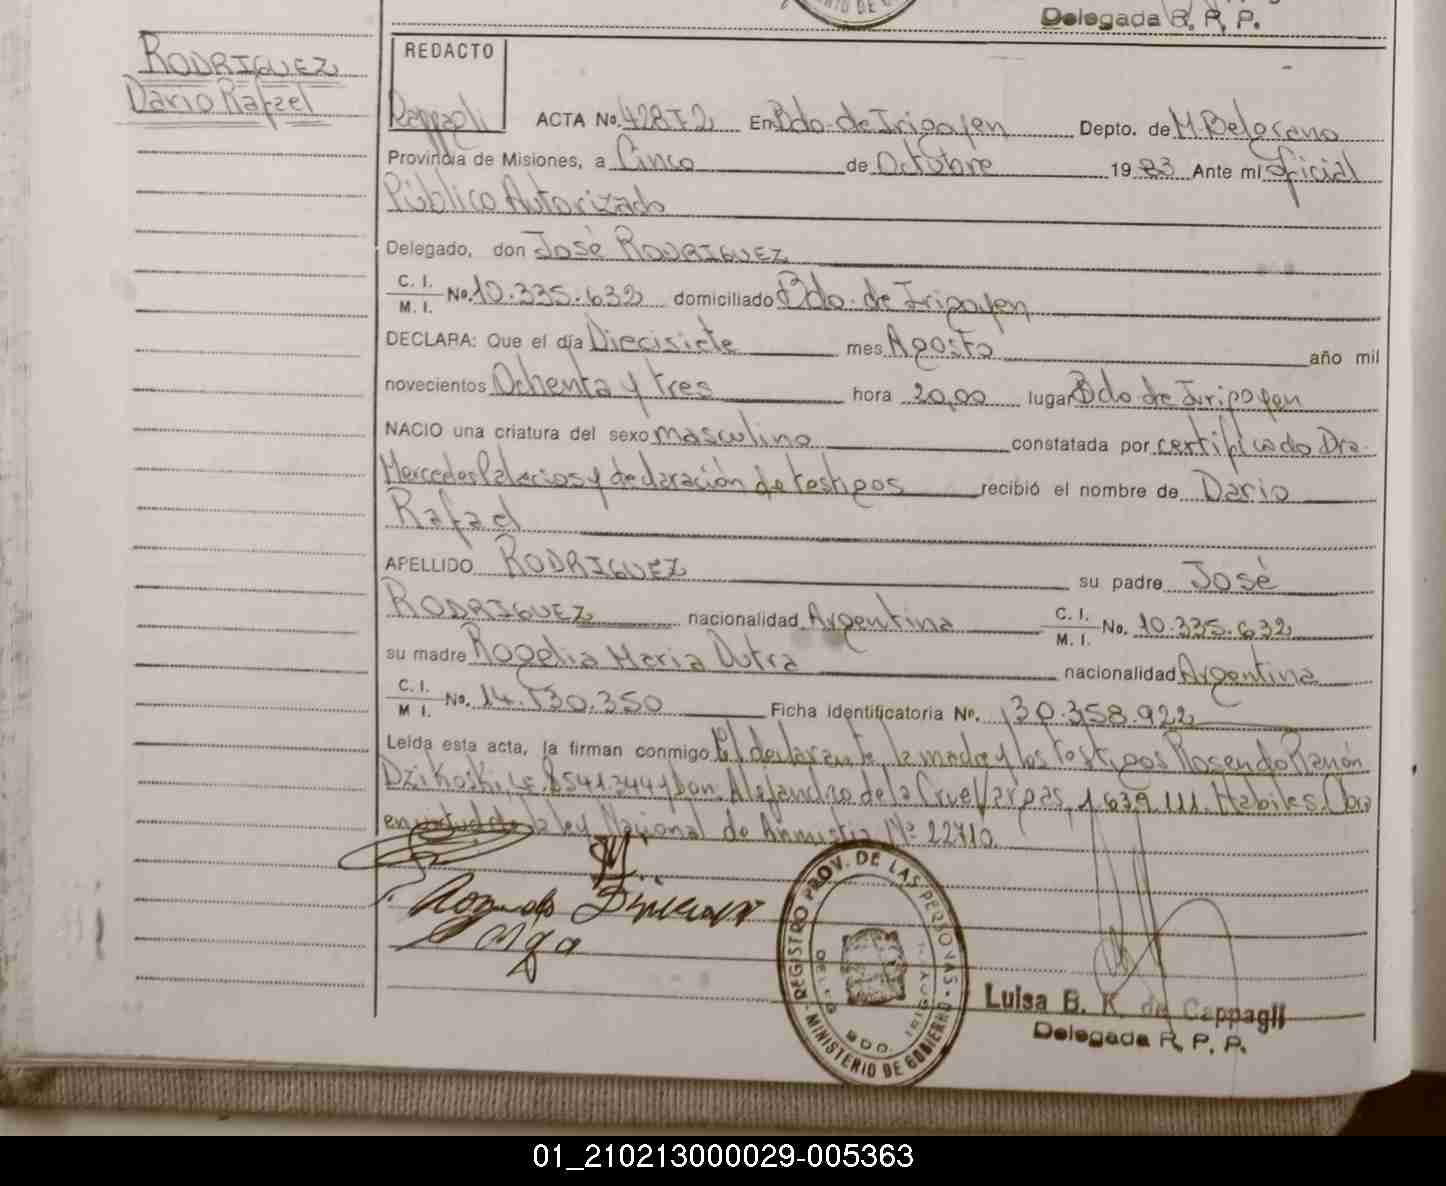 Delegada R. P. P.
RODRIGUEZ
Dario Rafael
REDACTO
Cappagli
ACTA No. 428 T2 En Bdo. de Irigoyen Depto. de M. Belgrano
Provincia de Misiones, a Cinco de Octubre 1983 Ante mi Oficial
Público Autorizado
Delegado, don José RODRIGUEZ
C. I.
M. I. No. 10.335.632 domiciliado Bdo. de Irigoyen
DECLARA: Que el día Diecisiete mes Agosto año mil
novecientos Ochenta y tres hora 20,00 lugar Bdo de Irigoyen
NACIO una criatura del sexo masculino constatada por certificado Dra.
Mercedes Palacios y declaración de testigos recibió el nombre de Dario
Rafael
APELLIDO RODRIGUEZ su padre José
RODRIGUEZ nacionalidad Argentina C. I.
M. I. No. 10.335.632
su madre Rogelia Maria Dutra nacionalidad Argentina
C. I.
M I. No. 14.130.350 Ficha Identificatoria No. 30.358.922
Leída esta acta, la firman conmigo El declarante, la madre y los testigos Rosendo Ramón
Dzikoski, 8541344 y don Alejandro de la Cruz Vargas, 1.639.111. Habiles.
en virtud de la ley Nacional de Amnistia Nº 22410.
REGISTRO PROV. DE LAS PERSONAS
MINISTERIO DE GOBIERNO
BDO.
Luisa B. K. de Cappagli
Delegada R. P. P.
01_210213000029-005363